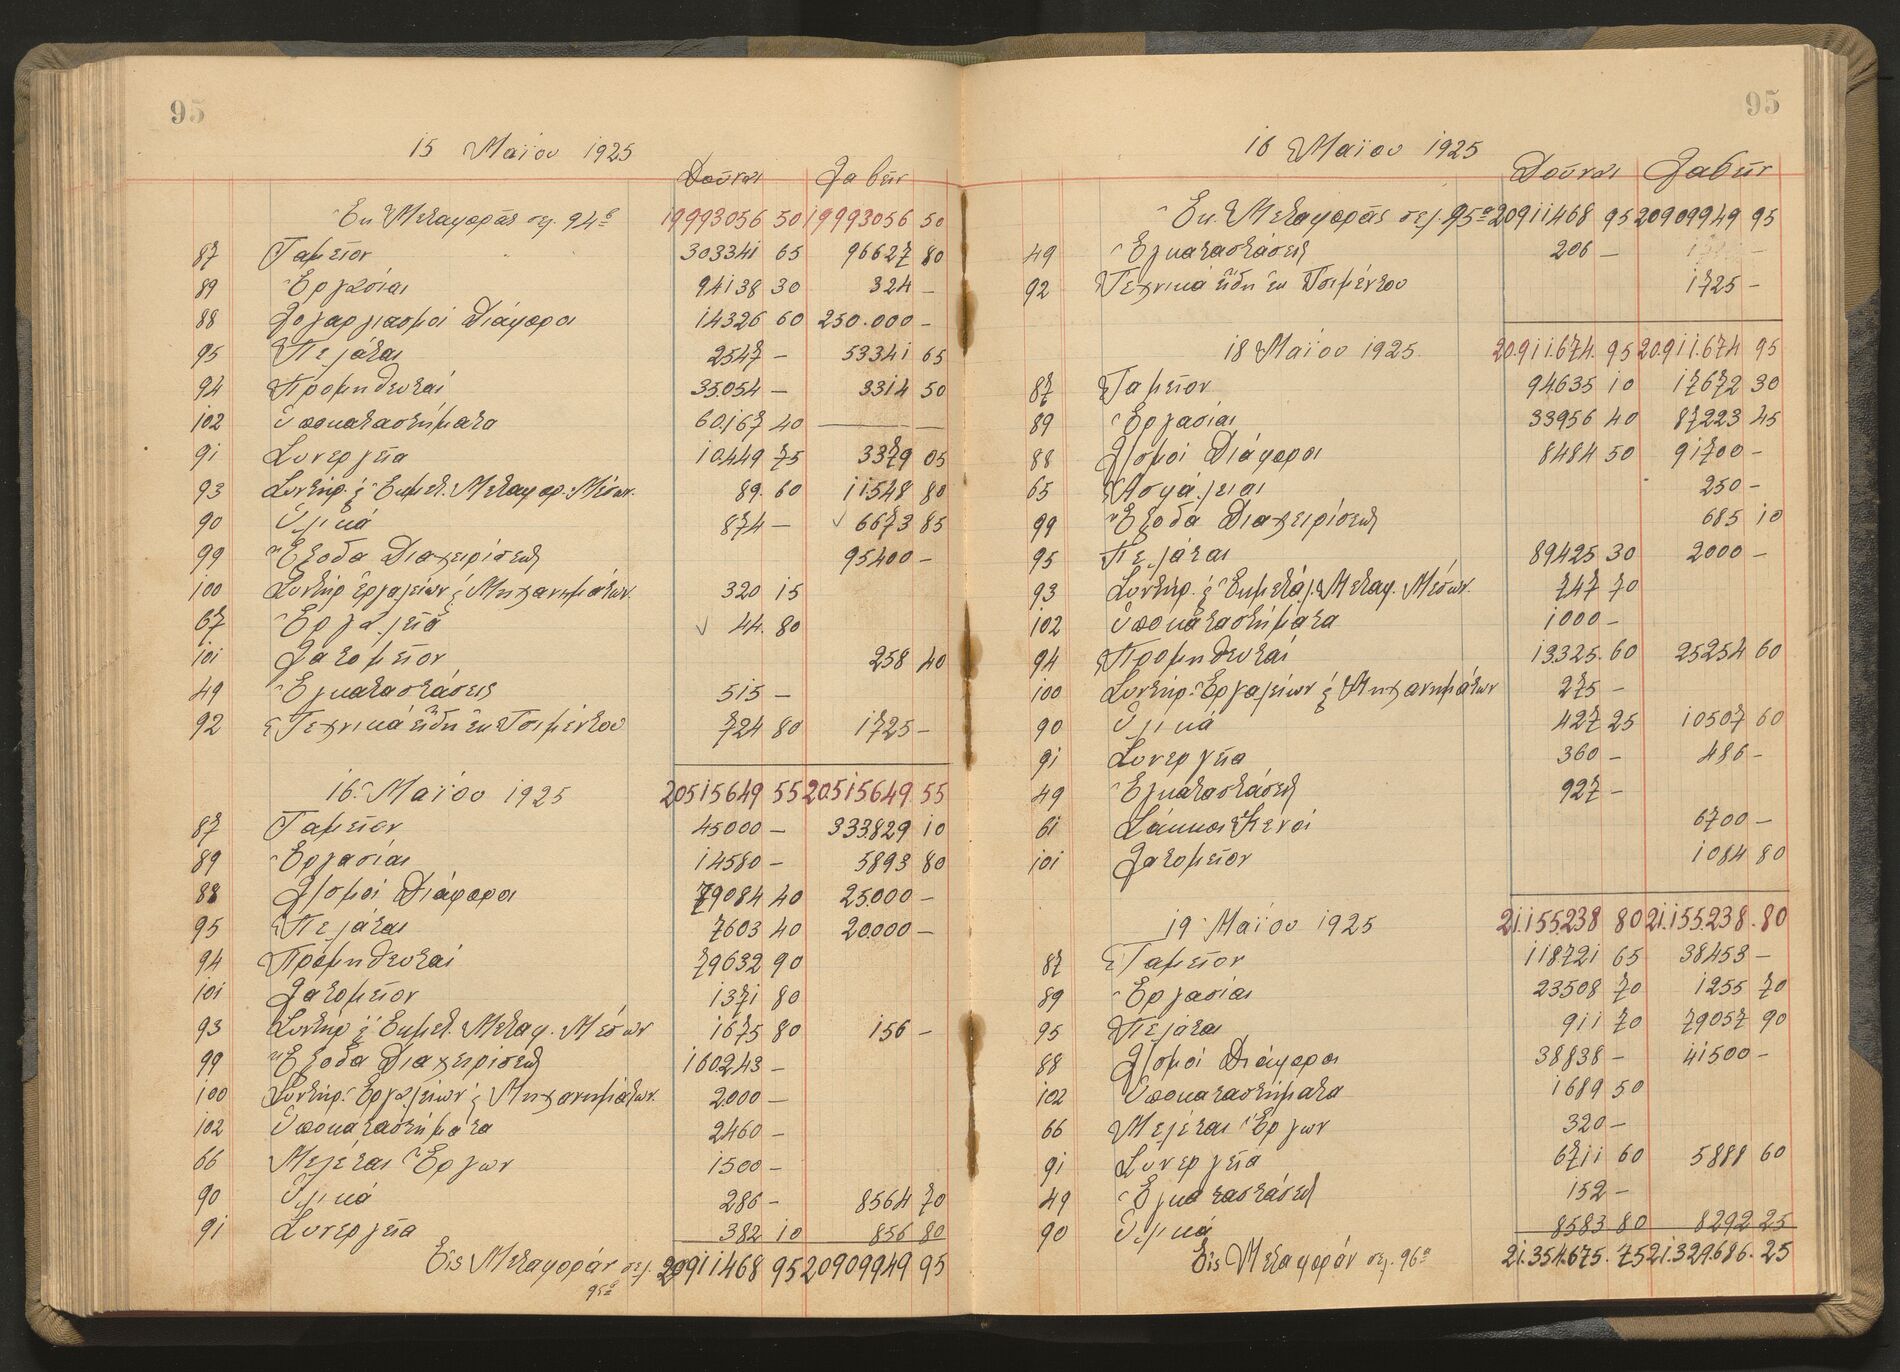 95
15 Μαΐου 1925
Δοῦναι Λαβεῖν
Ἐκ Μεταφορᾶς σελ. 94ης 19993056 50 19993056 50
87 Ταμεῖον 303341 65 96627 80
89 Ἐργασίαι 94138 30 324 –
88 Λογαριασμοί Διάφοροι 14326 60 250.000 –
95 Πελάται 2547 – 53341 65
94 Προμηθευταί 35.054 – 3314 50
102 Ὑποκαταστήματα 60.167 40 –
91 Συνεργεῖα 10.449 75 3379 05
93 Συντήρ. & Ἐκμετ. Μεταφορ. Μέσων. 89. 60 11548 80
90 Ὑλικά 874 – √ 6673 85
99 Ἔξοδα Διαχειρίσεως 95400 –
100 Συντήρ. ἐργαλείων & Μηχανημάτων. 320 15
67 Ἐργαλεῖα √ 44. 80
101 Λατομεῖον 258 40
49 Ἐγκαταστάσεις 515 –
92 Τεχνικά εἴδη ἐκ Τσιμέντου 724 80 1725 –
16. Μαΐου 1925 20515649 55 20.515649. 55
87 Ταμεῖον 45000 – 333.829 10
89 Ἐργασίαι 14580 – 5893 80
88 Λ/σμοί Διάφοροι 79084 40 25.000 –
95 Πελάται 7603 40 20.000 –
94 Προμηθευταί 79632 90
101 Λατομεῖον 1371 80
93 Συντήρ. & Ἐκμετ. Μεταφ. Μέσων 1675 80 156 –
99 Ἔξοδα Διαχειρίσεως 160243 –
100 Συντήρ. Ἐργαλείων & Μηχανημάτων. 2000 –
102 Ὑποκαταστήματα 2460 –
66 Μελέται Ἔργων 1500 –
90 Ὑλικά 286 – 8564 70
91 Συνεργεῖα 382 10 856 80
Εἰς Μεταφοράν σελ. 20911468 95 20909949 95
95α
95
16 Μαΐου 1925
Δοῦναι Λαβεῖν
Ἐκ Μεταφορᾶς σελ. 95α 20911468 95 20909949 95
49 Ἐγκαταστάσεις 206 –
92 Τεχνικά εἴδη ἐκ Τσιμέντου 1725 –
18 Μαΐου 1925. 20.911.674. 95 20.911.674 95
87 Ταμεῖον 94635 10 17672 30
89 Ἐργασίαι 33956 40 87223 45
88 Λ/σμοί Διάφοροι 8484 50 91700 –
65 Ἀσφάλειαι 250 –
99 Ἔξοδα Διαχειρίσεως 685 10
95 Πελάται 89425 30 2000 –
93 Συντήρ. & Ἐκμετάλ. Μεταφ. Μέσων. 747 70
102 Ὑποκαταστήματα 1000 –
94 Προμηθευταί 13.325. 60 25254 60
100 Συντήρ. Ἐργαλείων & Μηχανημάτων 275 –
90 Ὑλικά 427 25 10507 60
91 Συνεργεῖα 360 – 486 –
49 Ἐγκαταστάσεις 927 –
61 Σάκκοι Κενοί 6700 –
101 Λατομεῖον 1084 80
19 Μαΐου 1925 21.155.238 80 21.155.238. 80
87 Ταμεῖον 118721 65 38453 –
89 Ἐργασίαι 23508 70 1255 70
95 Πελάται 911 70 79057 90
88 Λ/σμοί Διάφοροι 38838 – 41500 –
102 Ὑποκαταστήματα 1689 50
66 Μελέται Ἔργων 320 –
91 Συνεργεῖα 6711 60 5888 60
49 Ἐγκαταστάσεις 152 –
90 Ὑλικά 8583 80 8292 25
Εἰς Μεταφοράν σελ. 96α 21.354.675. 75 21.329.686. 25